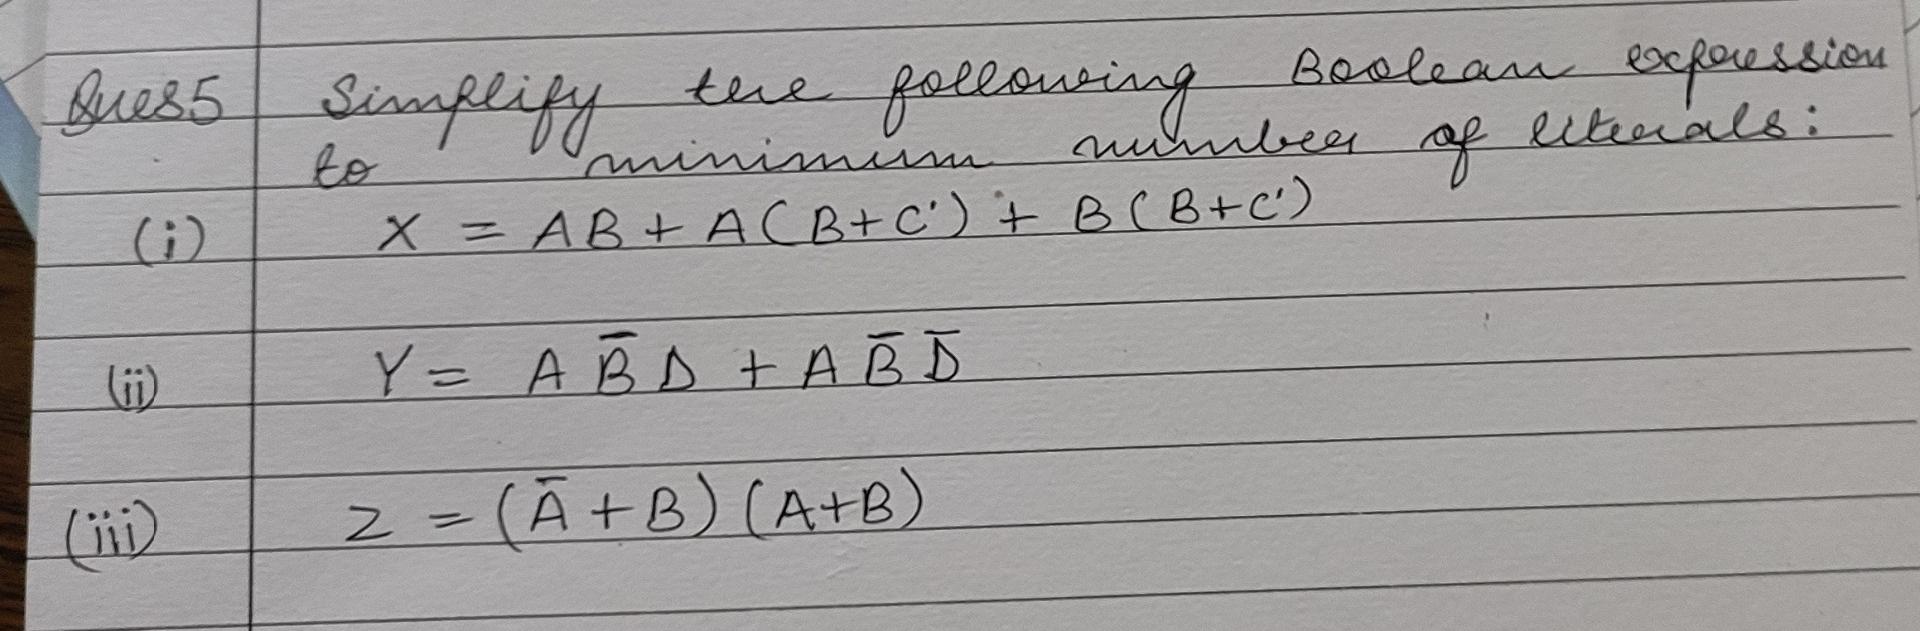 Ques5 Simplify the following Boolean expression
to minimum number of literals:
(i) X = AB + A(B+C') + B(B+C')
(ii) Y = A B̅ D + A B̅ D̅
(iii) Z = (A̅ + B) (A+B)